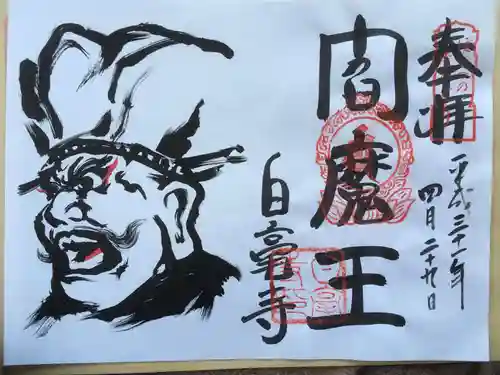 奉拝
平成三十一年
四月二十九日
閻魔王
白毫寺